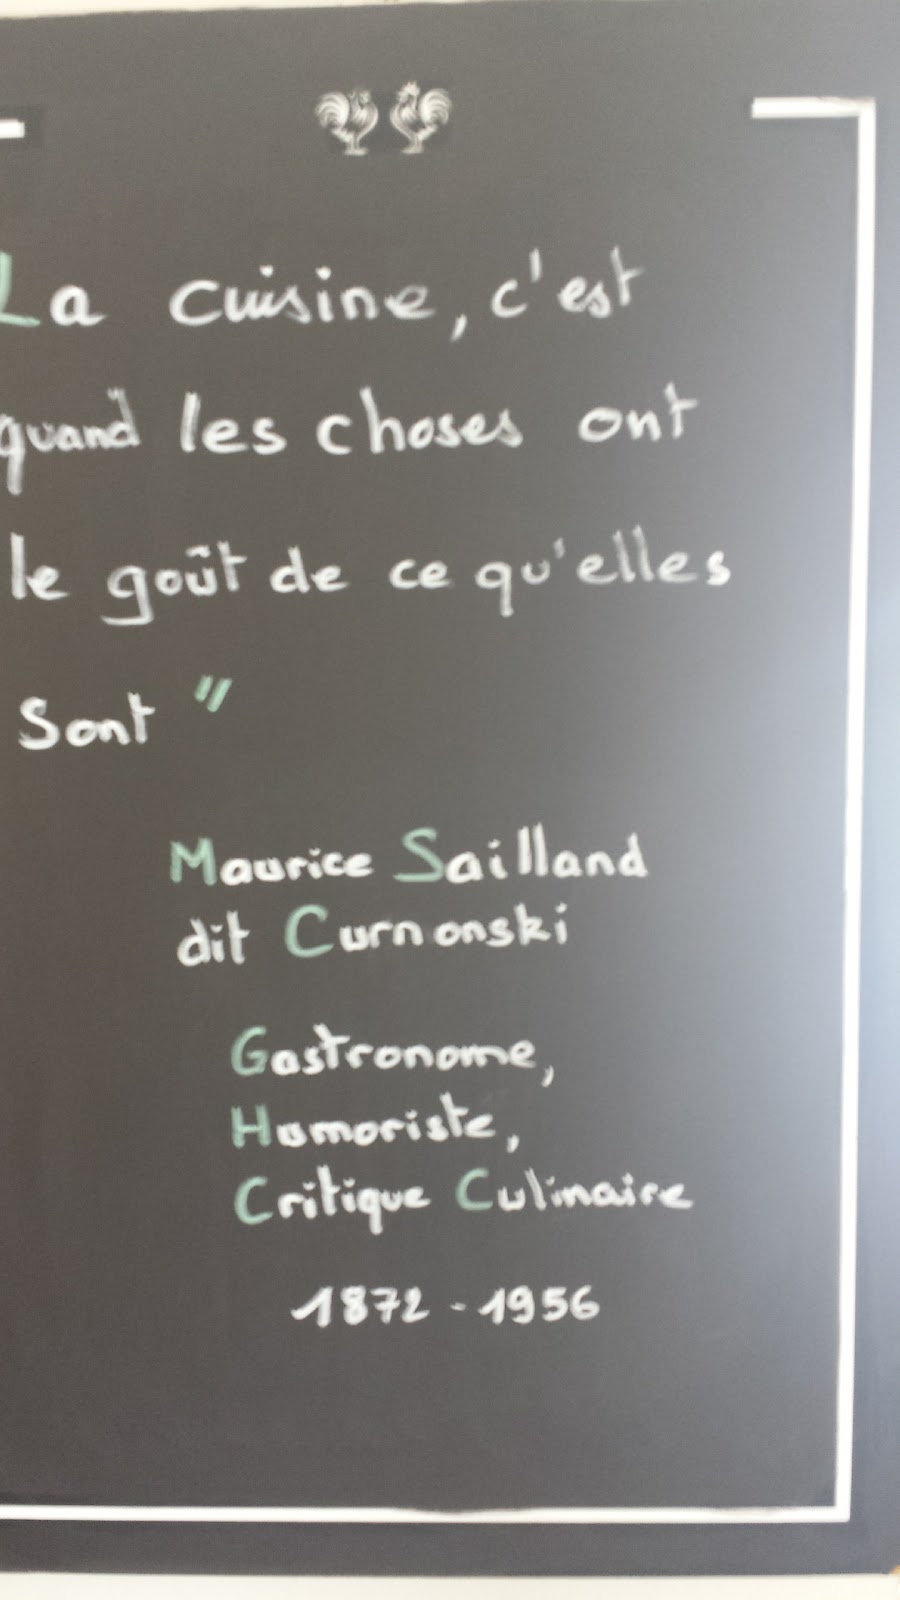 La cuisine, c'est
quand les choses ont
le goût de ce qu'elles
sont "
Maurice Sailland
dit Curnonski
Gastronome,
Humoriste,
Critique Culinaire
1872 - 1956